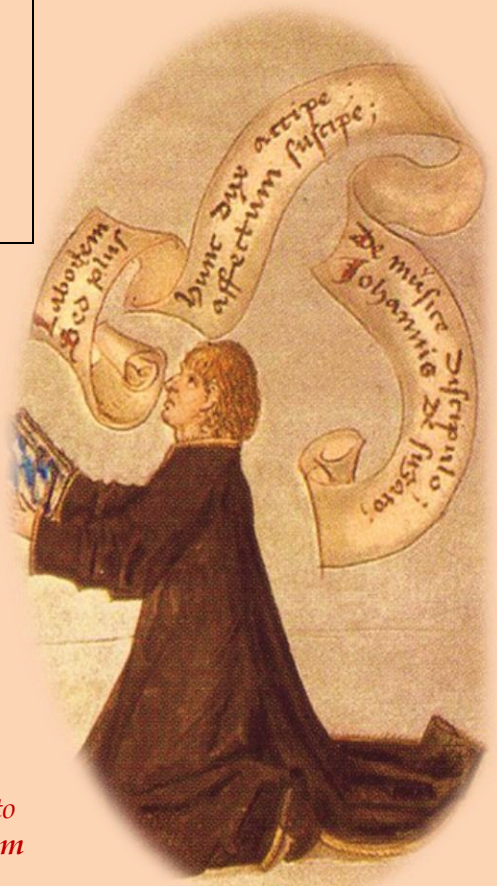 Laborem
Sed plus
hunc dux accipe;
affectum suscipe;
De musice discipulo;
Johannis de
to
m